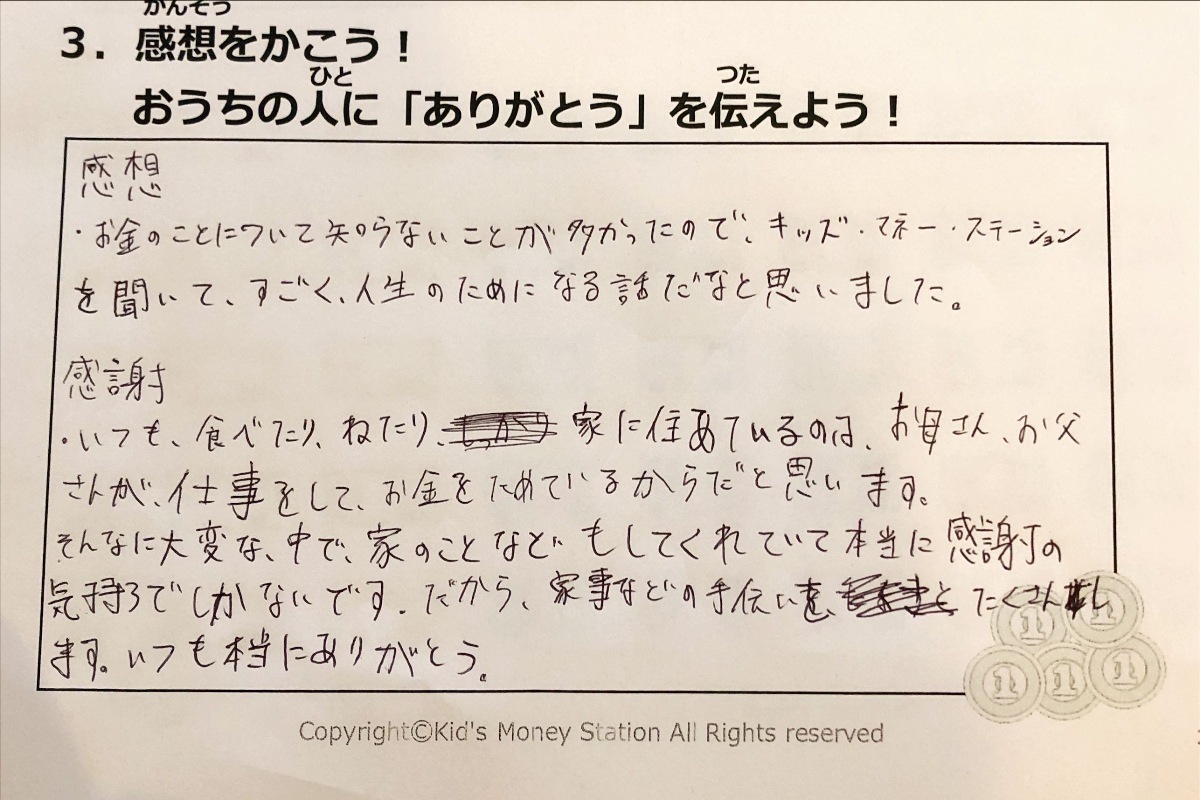 かんそう
3．感想をかこう！
ひと つた
おうちの人に「ありがとう」を伝えよう！
感想
・お金のことについて知らないことが多かったので、キッズ・マネー・ステーション
を聞いて、すごく、人生のためになる話だなと思いました。
感謝
・いつも、食べたり、ねたり、家に住めているのは、お母さん、お父
さんが、仕事をして、お金をためているからだと思います。
そんなに大変な、中で、家のことなどもしてくれていて本当に感謝の
気持ちでしかないです。だから、家事などの手伝いを、たくさんし
ます。いつも本当にありがとう。
1 1 1 1 1
Copyright©Kid's Money Station All Rights reserved